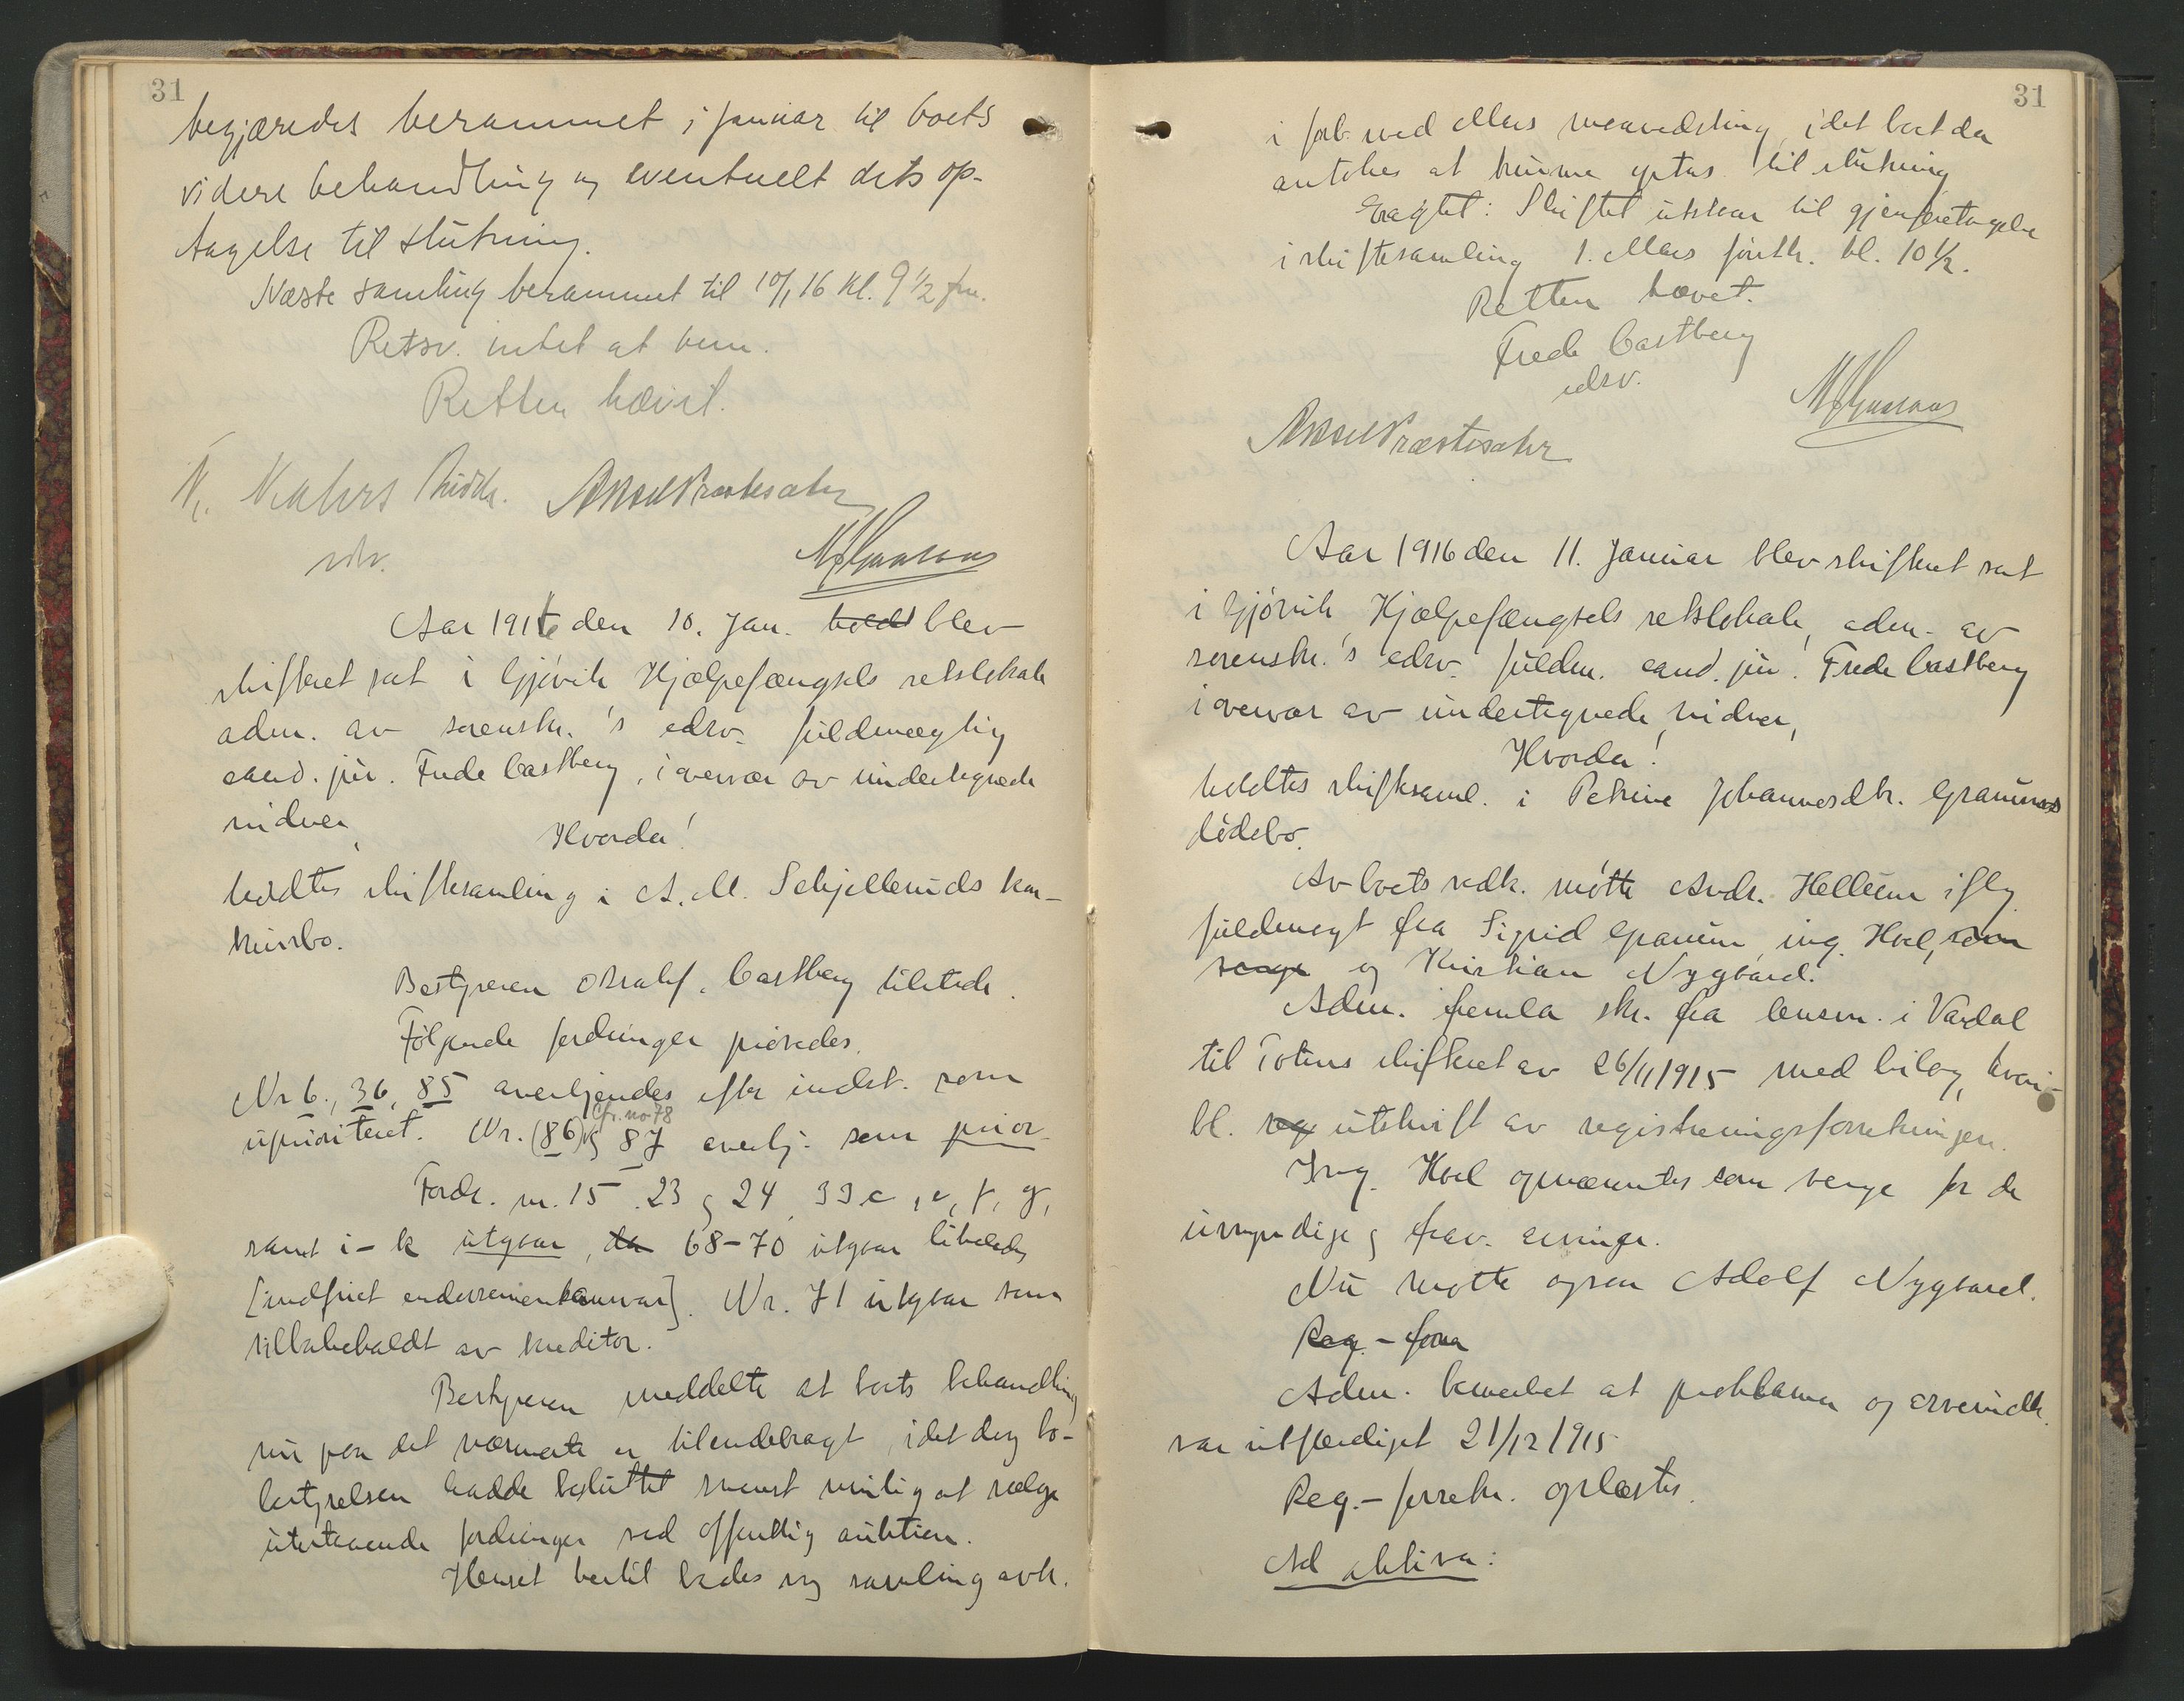 31
begjæredes berammet i januar til boets
videre behandling og eventuelt dets op-
tagelse til slutning.
Næste samling berammet til 10/1 16 kl. 9 1/2 fm.
Retsv. intet at bem.
Retten hævet.
N. Kahrs
Aksel Præstesæter
Aar 1916 den 10. Jan. holdt blev
skifteret sat i Gjøvik Hjælpefængsels retslokale
adm. av sorenskr.'s edsv. fuldmægtig
cand. jur. Frede Castberg, i overvær av undertegnede
vidner,
Hvorda!
holdtes skiftesamling i A. M. Schjelleruds kon-
kursbo.
Bestyreren o.r.sakf. Castberg tilstede.
Følgende fordringer prøvedes.
Nr 6., 36, 85 anerkjendes efter indst. som
cfr. no 78
uprioritert. Nr. (86) og 87 anerkj. som prior.
Fordr. nr. 15 23 og 24, 33 c, e, f, g,
samt i - k utgaar, da 68-70 utgaar likeledes
[indfriet endossementansvar]. Nr. 71 utgaar som
tilbakekaldt av kreditor.
Bestyreren meddelte at boets behandling
nu paa det nærmeste er tilendebragt, idet dog bo-
bestyrelsen hadde besluttet snarest mulig at sælge
utestaaende fordringer ved offentlig auktion.
Henset hertil bedes ny samling avh.
31
i forb. med idet boet da
antokes at kunne optas til slutning
Eragtet: Skiftet utstaar til gjenforetagelse
i skiftesamling 1. Mars førstk. kl. 10 1/2.
Retten hævet.
Frede Castberg
edsv.
Aksel Præstesæter
Aar 1916 den 11. Januar blev skifteret sat
i Gjøvik Hjælpefængsels retslokale, adm. av
sorenskr.'s edsv. fuldm. cand. jur. Frede Castberg
i overvær av undertegnede vidner,
Hvorda!
holdtes skiftesaml. i Petrine Johannesdtr. Graunas
dødebo.
Av boets vedk. møtte Andr. Hellum iflg.
fuldmagt fra Sigrid Graum, ing. Hoel, som
verge og Kristian Nygaard.
Adm. fremla skr. fra lensm. i Vardal
til Totens skifteret av 26/11 1915 med bilag, hvori-
bl. reg utskrift av registreringsforretningen.
Ing. Hoel opnævntes som verge for de
umyndige og frav. arvinger.
Nu møtte ogsaa Adolf Nygaard.
Reg. - forr
Adm. bemerket at proklama og arveindk.
var utfærdiget 21/12 1915
Reg.- forretn. oplæstes.
Ad aktiva: